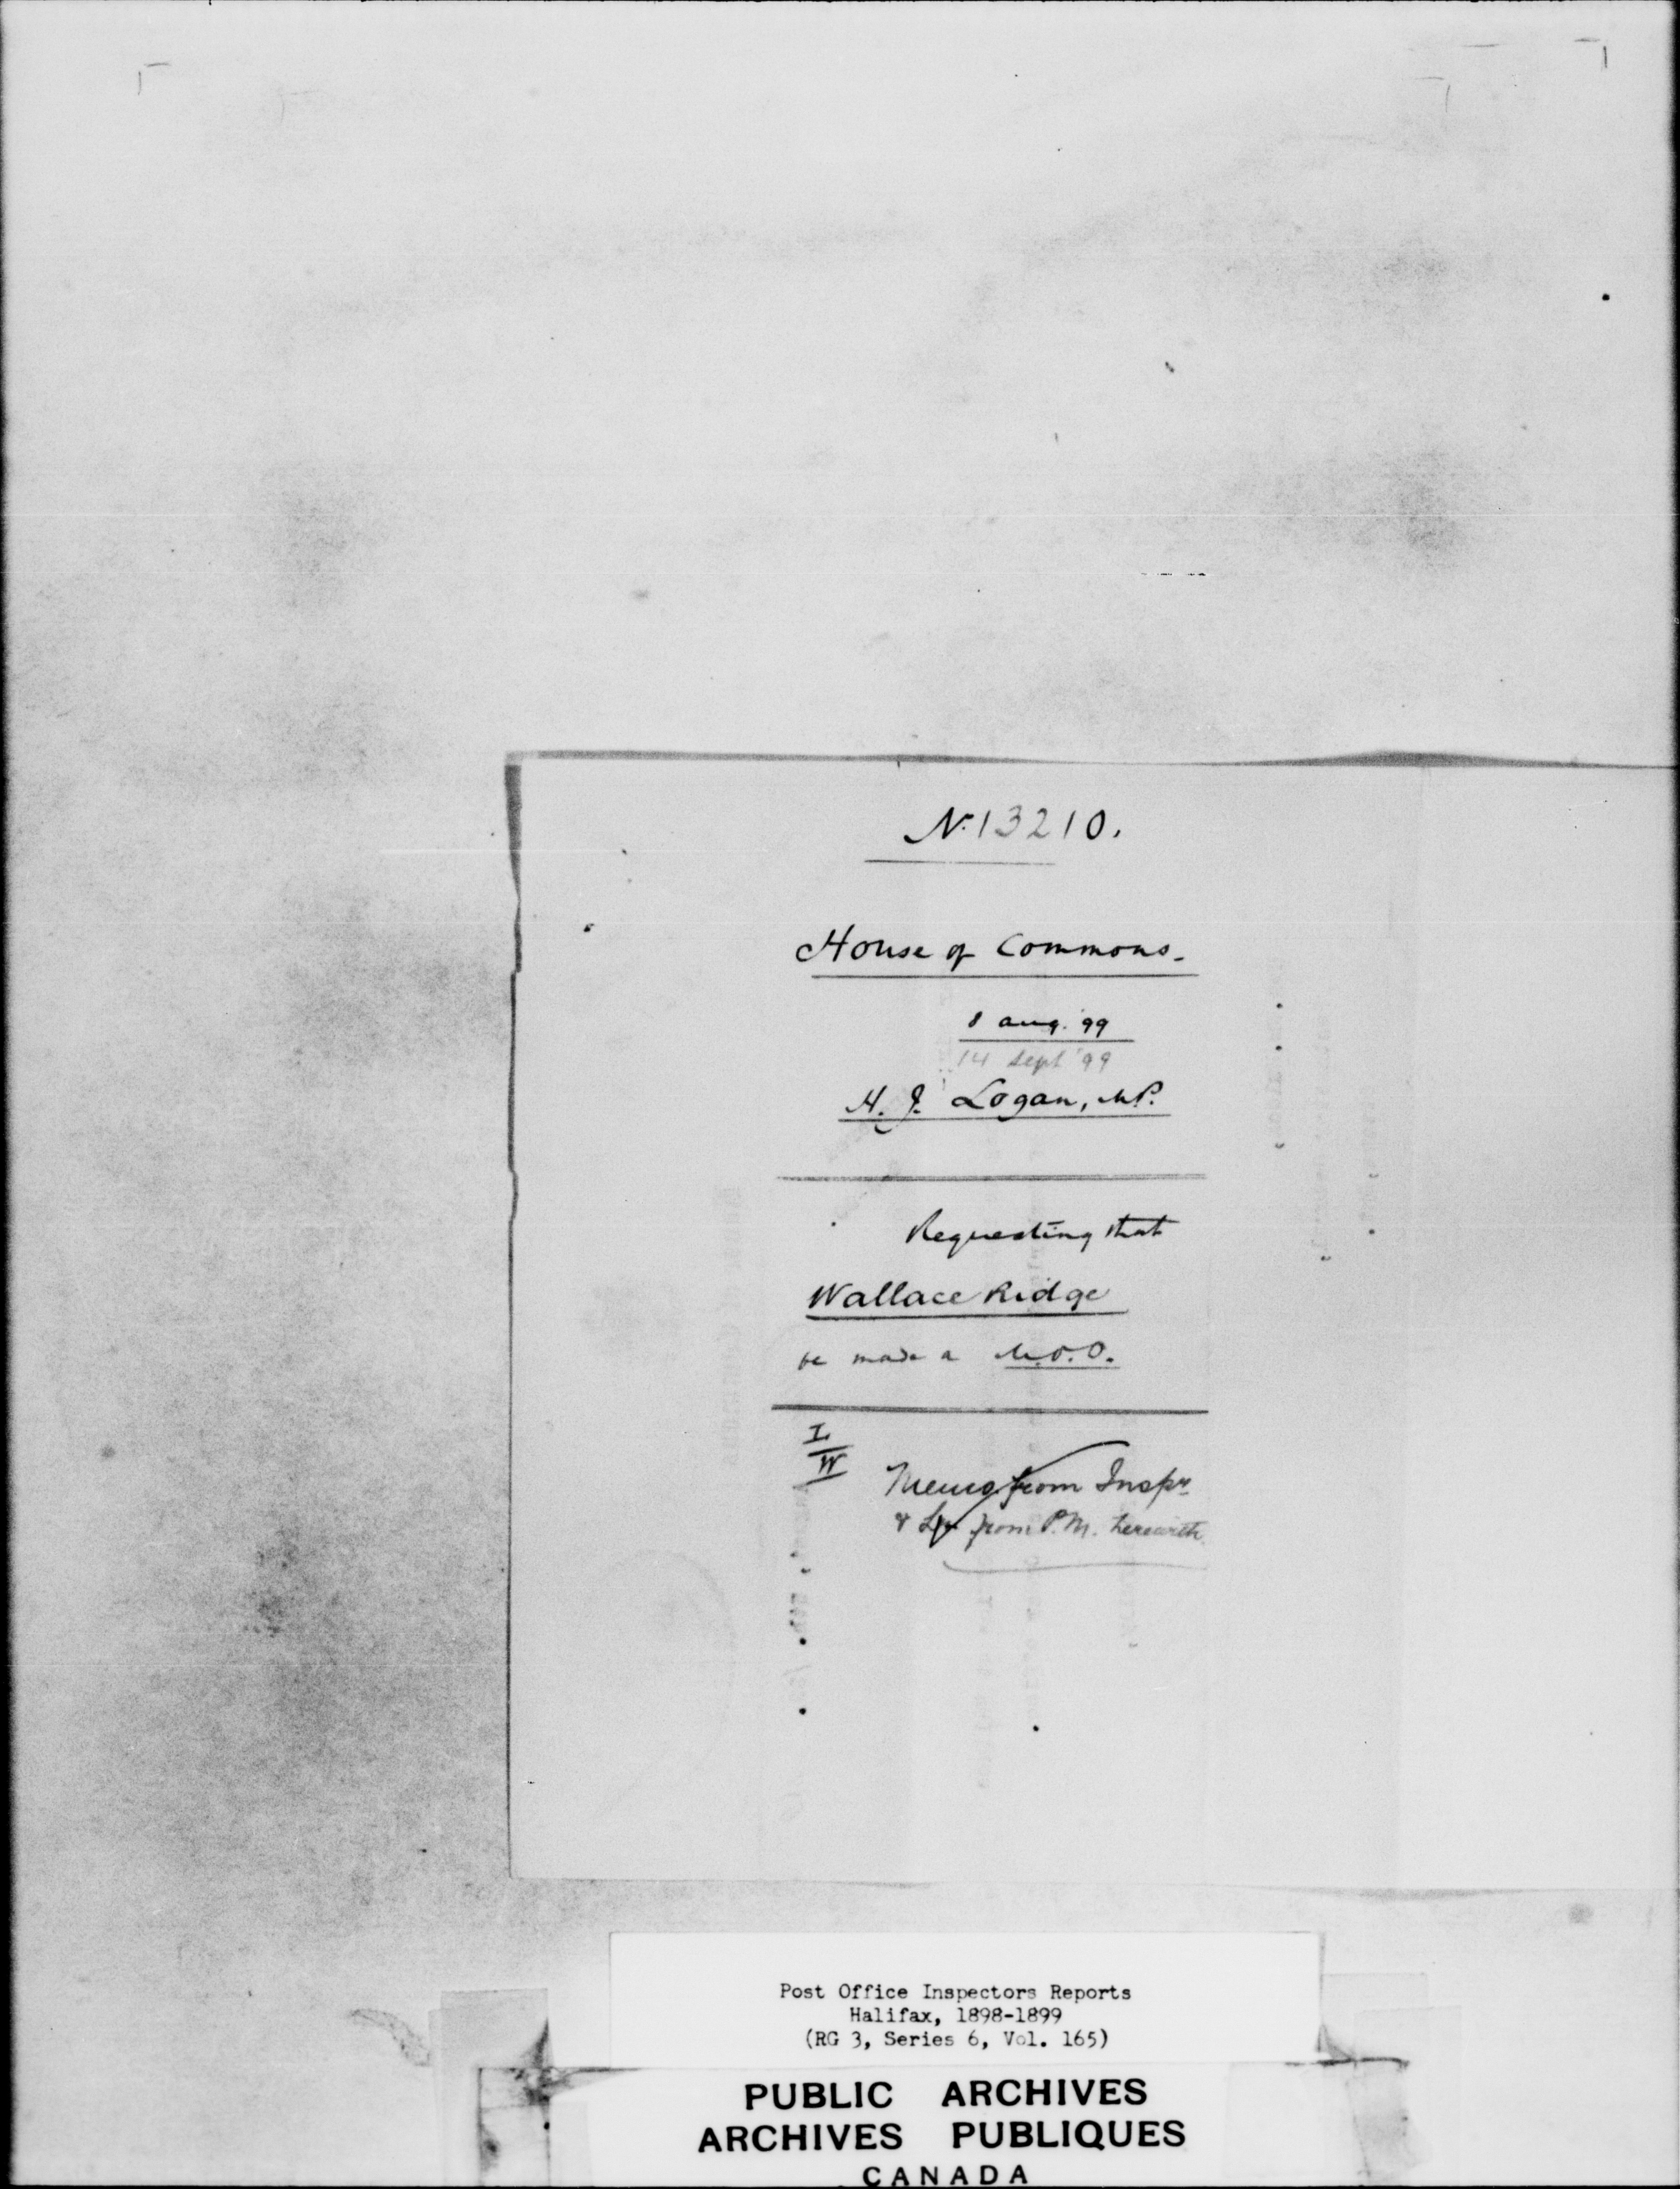 No. 13210.
House of Commons.
8 Aug. '99
14 Sept '99
H. J. Logan, M.P.
Requesting that
Wallace Ridge
be made a M.O.O.
I
W
Memo from Inspr
& Lr from P.M. herewith
Post Office Inspectors Reports
Halifax, 1898-1899
(RG 3, Series 6, Vol. 165)
PUBLIC ARCHIVES
ARCHIVES PUBLIQUES
CANADA